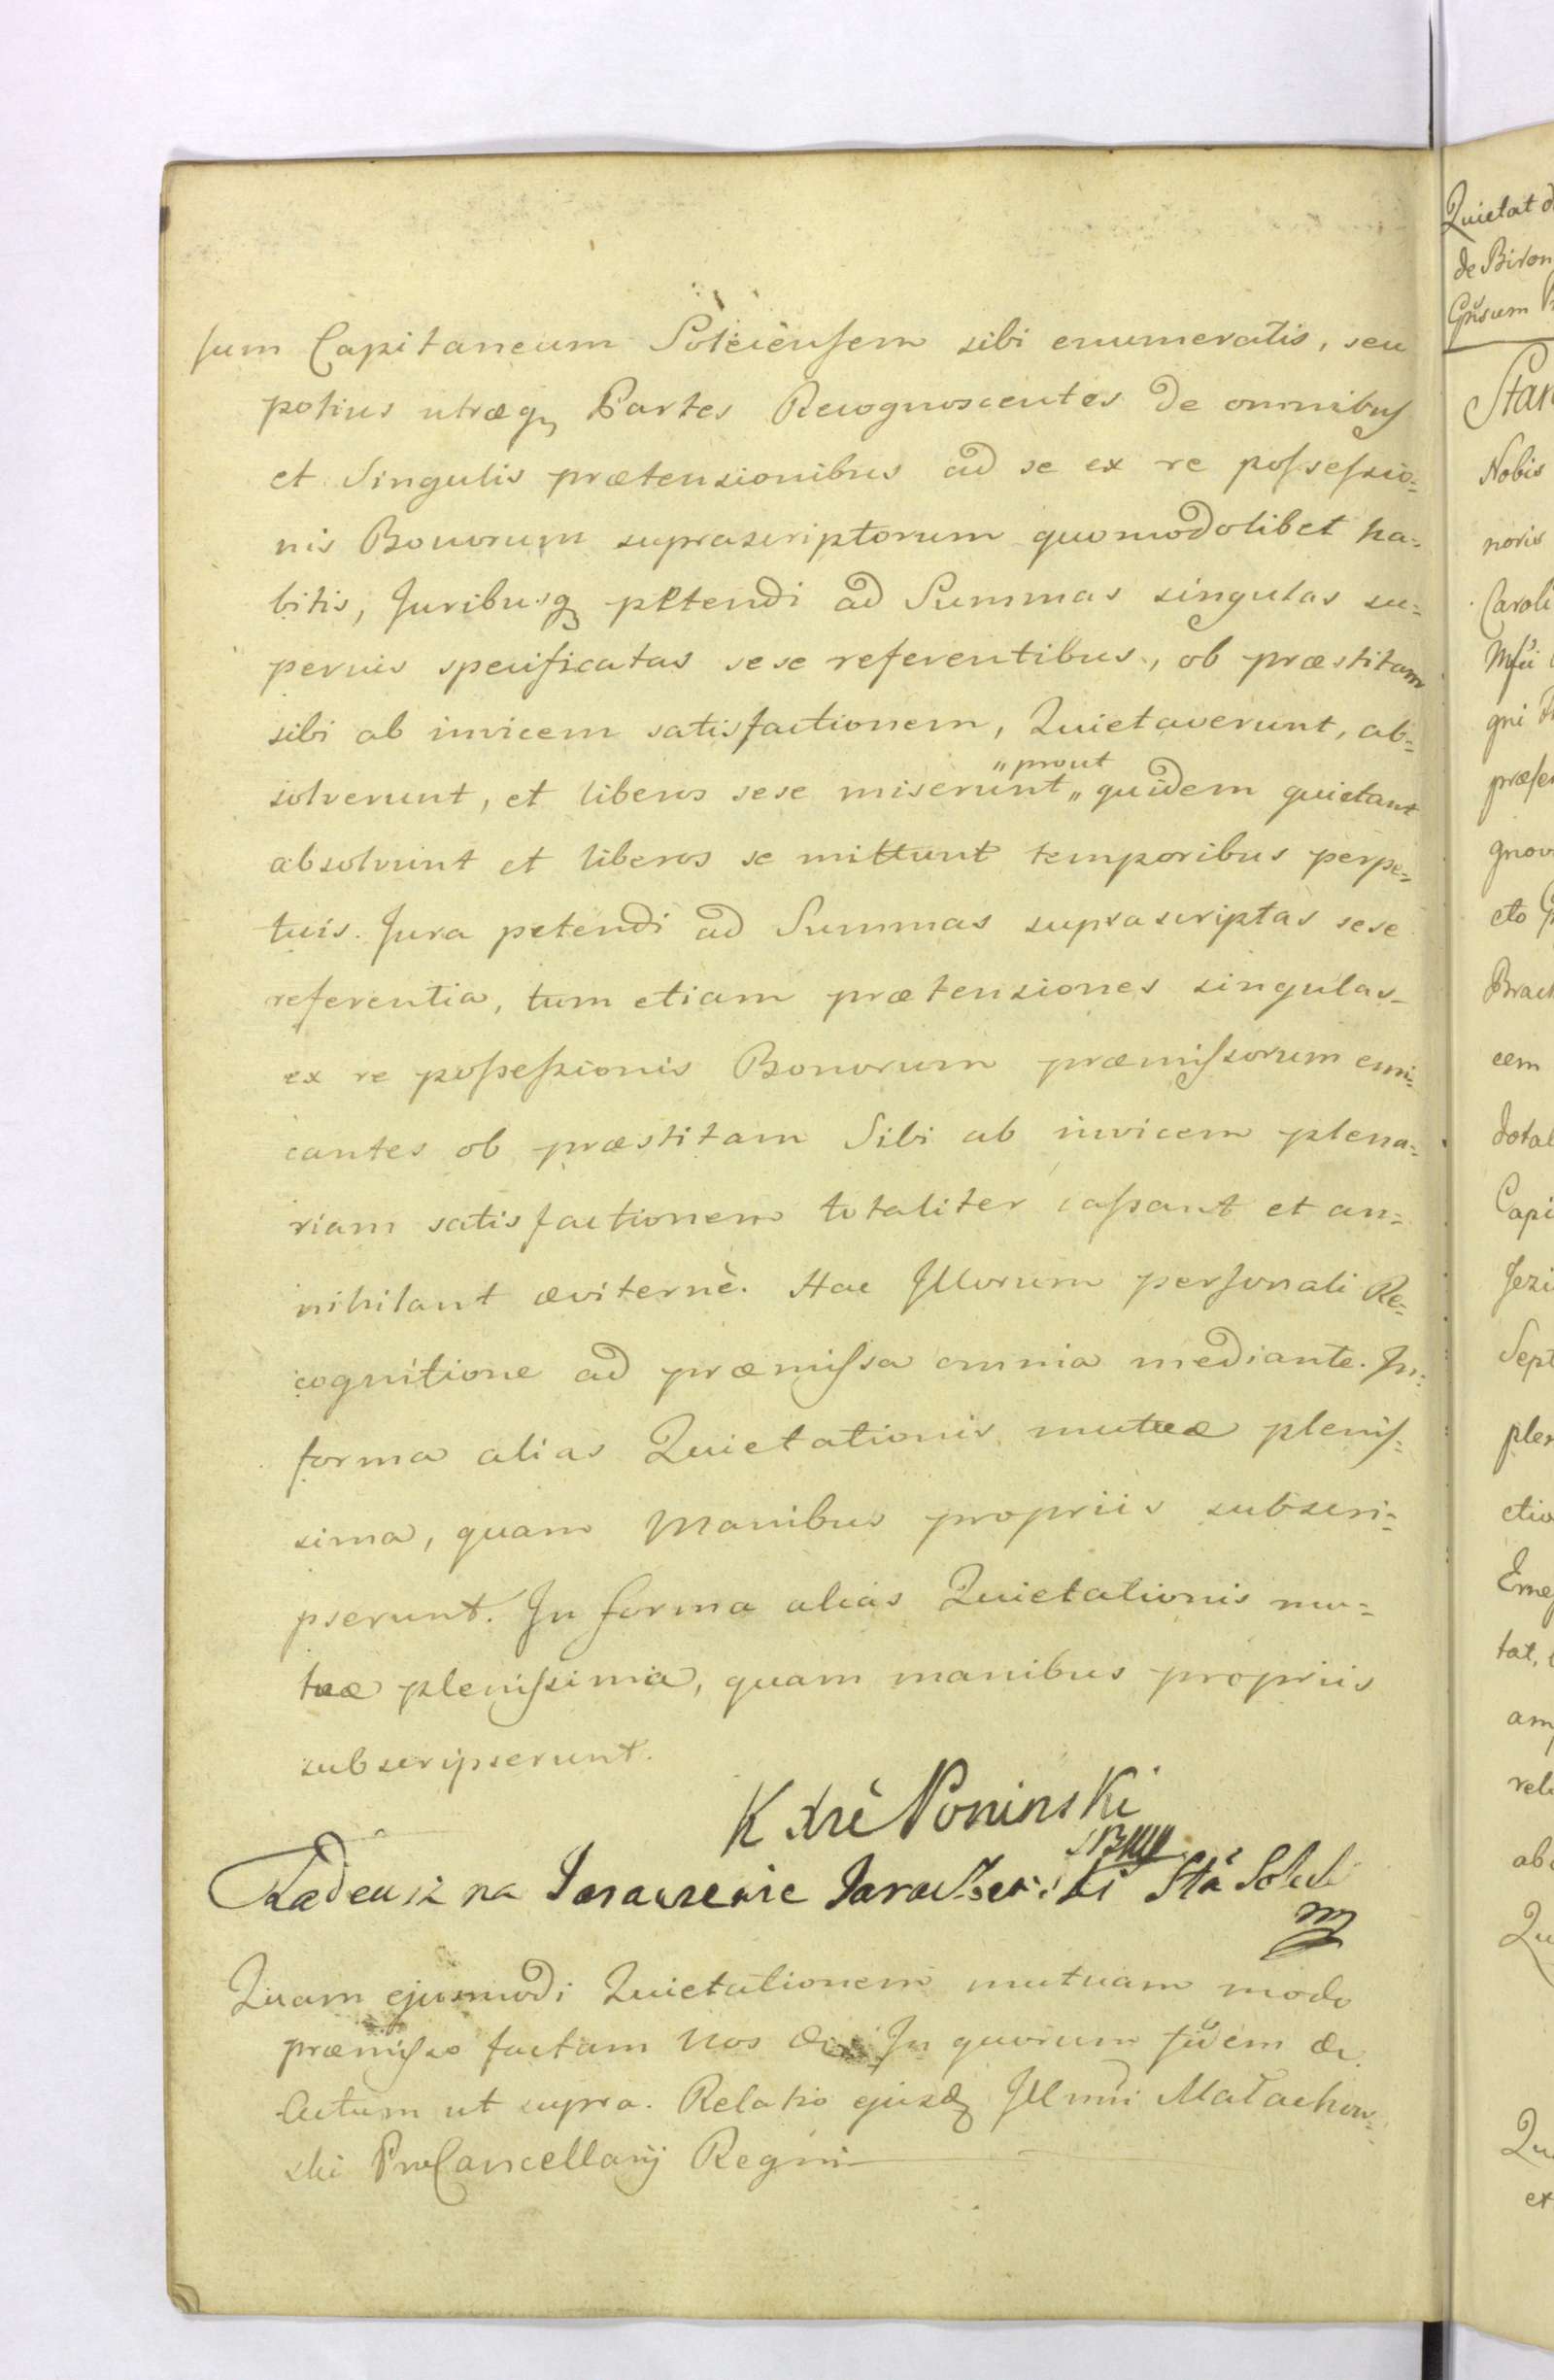 sum Capitaneum Soleciensem sibi enumeratis, seu
potius utræq, Partes Recognoscentes de omnibus
et Singulis prætensionibus ad se ex re possessio=
nis Bonorum suprascriptorum quomodolibet ha=
bitis, Juribusq petendi ad Summas singulas su=
pernis specificatas sese referentibus, ob præstitam
sibi ab invicem satisfactionem, Quietaverunt, ab=
solverunt, et liberos sese miserunt „prout„ quidem quietant
absolvunt et liberos se mittunt temporibus perpe=
tuis. Jura petendi ad Summas suprascriptas sese
referentia, tum etiam prætensiones singulas
ex re possessionis Bonorum præmissorum emi=
cantes ob præstitam Sibi ab invicem plena=
riam satisfactionem totaliter cassant et an=
nihilant æviternè. Hac Illorum personali Re=
cognitione ad præmissa omnia mediante. In
forma alias Quietationis mutuæ plenis=
sima, quam Manibus propriis subscri=
pserunt. In forma alias Quietationis mu=
tuæ plenissima, quam manibus propriis
subscripserunt.
K Xże Poninski
Tadeusz na Jaraczewie Jaraczewski Sta Solecki
mp
Quam ejusmodi Quietationem mutuam modo
præmisso factam Nos &c. In quorum fidem &c.
Actum ut supra. Relatio ejusd Illmi Małachow=
ski ProCancellarij Regni
Quietat
de Biron
Gnsum
Stan
Nobis
noris
Caroli
Msu
gni
præse
gnov
cto
Brac
cem
dotal
Capi
Jezi
Sept
plen
ctio
Erne
tat,
am
rel
ab
Qu
Qu
ex